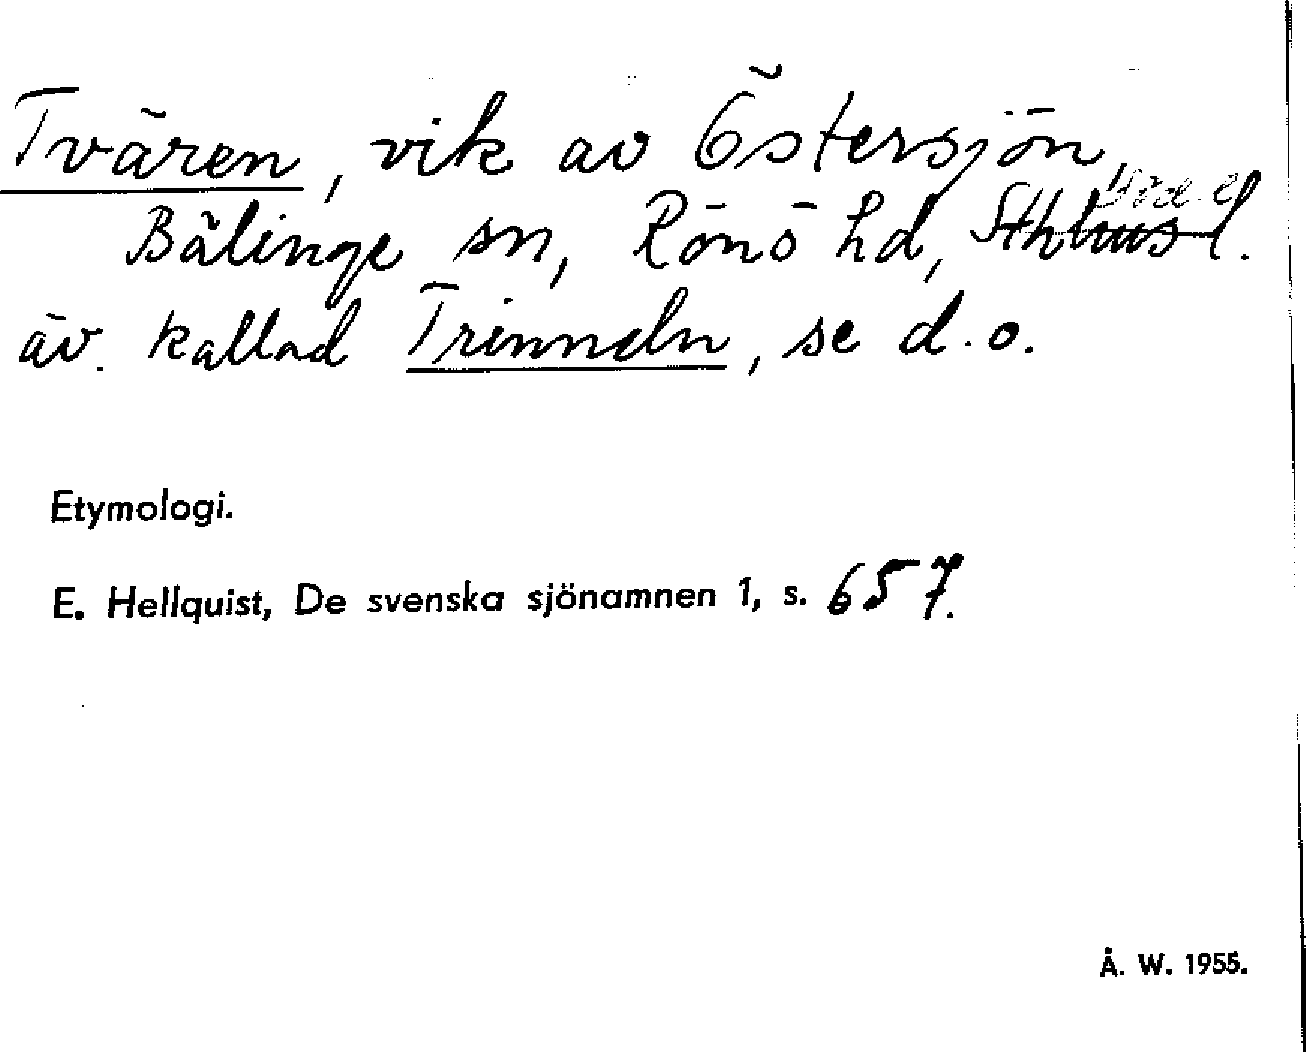 Tvären, vik av Östersjön,
Bälinge sn, Rönö hd, Sthlms l. Söd. l.
äv. kallad Trinneln, se d.o.
Etymologi.
E. Hellquist, De svenska sjönamnen 1, s. 657.
Å. W. 1955.